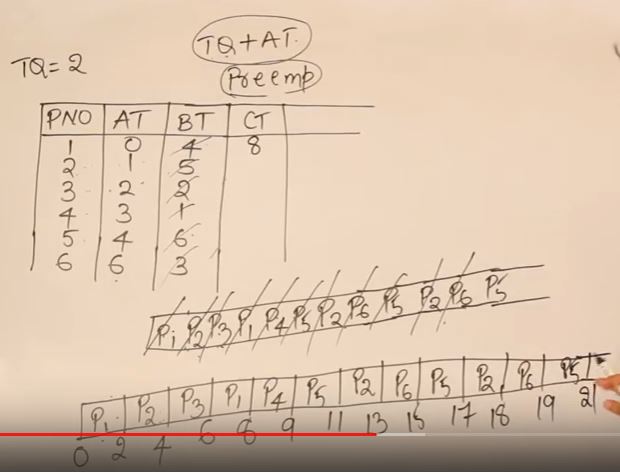 TQ+AT.
TQ=2
Preemp
PNO AT BT CT
1 0 4 8
2 1 5
3 2 2
4 3 1
5 4 6
6 6 3
P1 P2 P3 P1 P4 P5 P2 P6 P5 P2 P6 P5
P1 P2 P3 P1 P4 P5 P2 P6 P5 P2 P6 P5
0 2 4 6 8 9 11 13 15 17 18 19 21